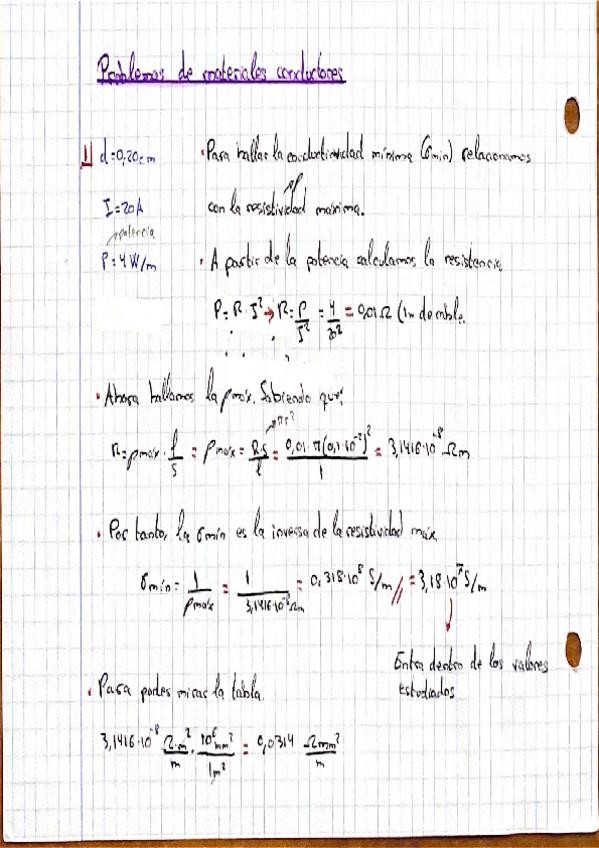 Problemas de materiales conductores
1 d=0,20cm · Para hallar la conductividad mínima (σmin) relacionamos
I=20A con la resistividad máxima.
potencia
P=4W/m · A partir de la potencia calculamos la resistencia
P=R·I² → R=P/I² = 4/20² = 0,01Ω (1m de cable.
· Ahora hallamos la ρmáx. Sabiendo que:
πr²
R=ρmáx·l/S = ρmáx = R·S/l = 0,01·π(0,1·10⁻²)²/1 = 3,1416·10⁻⁸ Ωm
· Por tanto, la σmín es la inversa de la resistividad máx
σmín = 1/ρmáx = 1/3,1416·10⁻⁸Ωm = 0,318·10⁸ S/m // = 3,18·10⁷ S/m
Entra dentro de los valores
estudiados
· Para poder mirar la tabla.
3,1416·10⁻⁸ Ω·m²/m · 10⁶mm²/1m² = 0,0314 Ωmm²/m